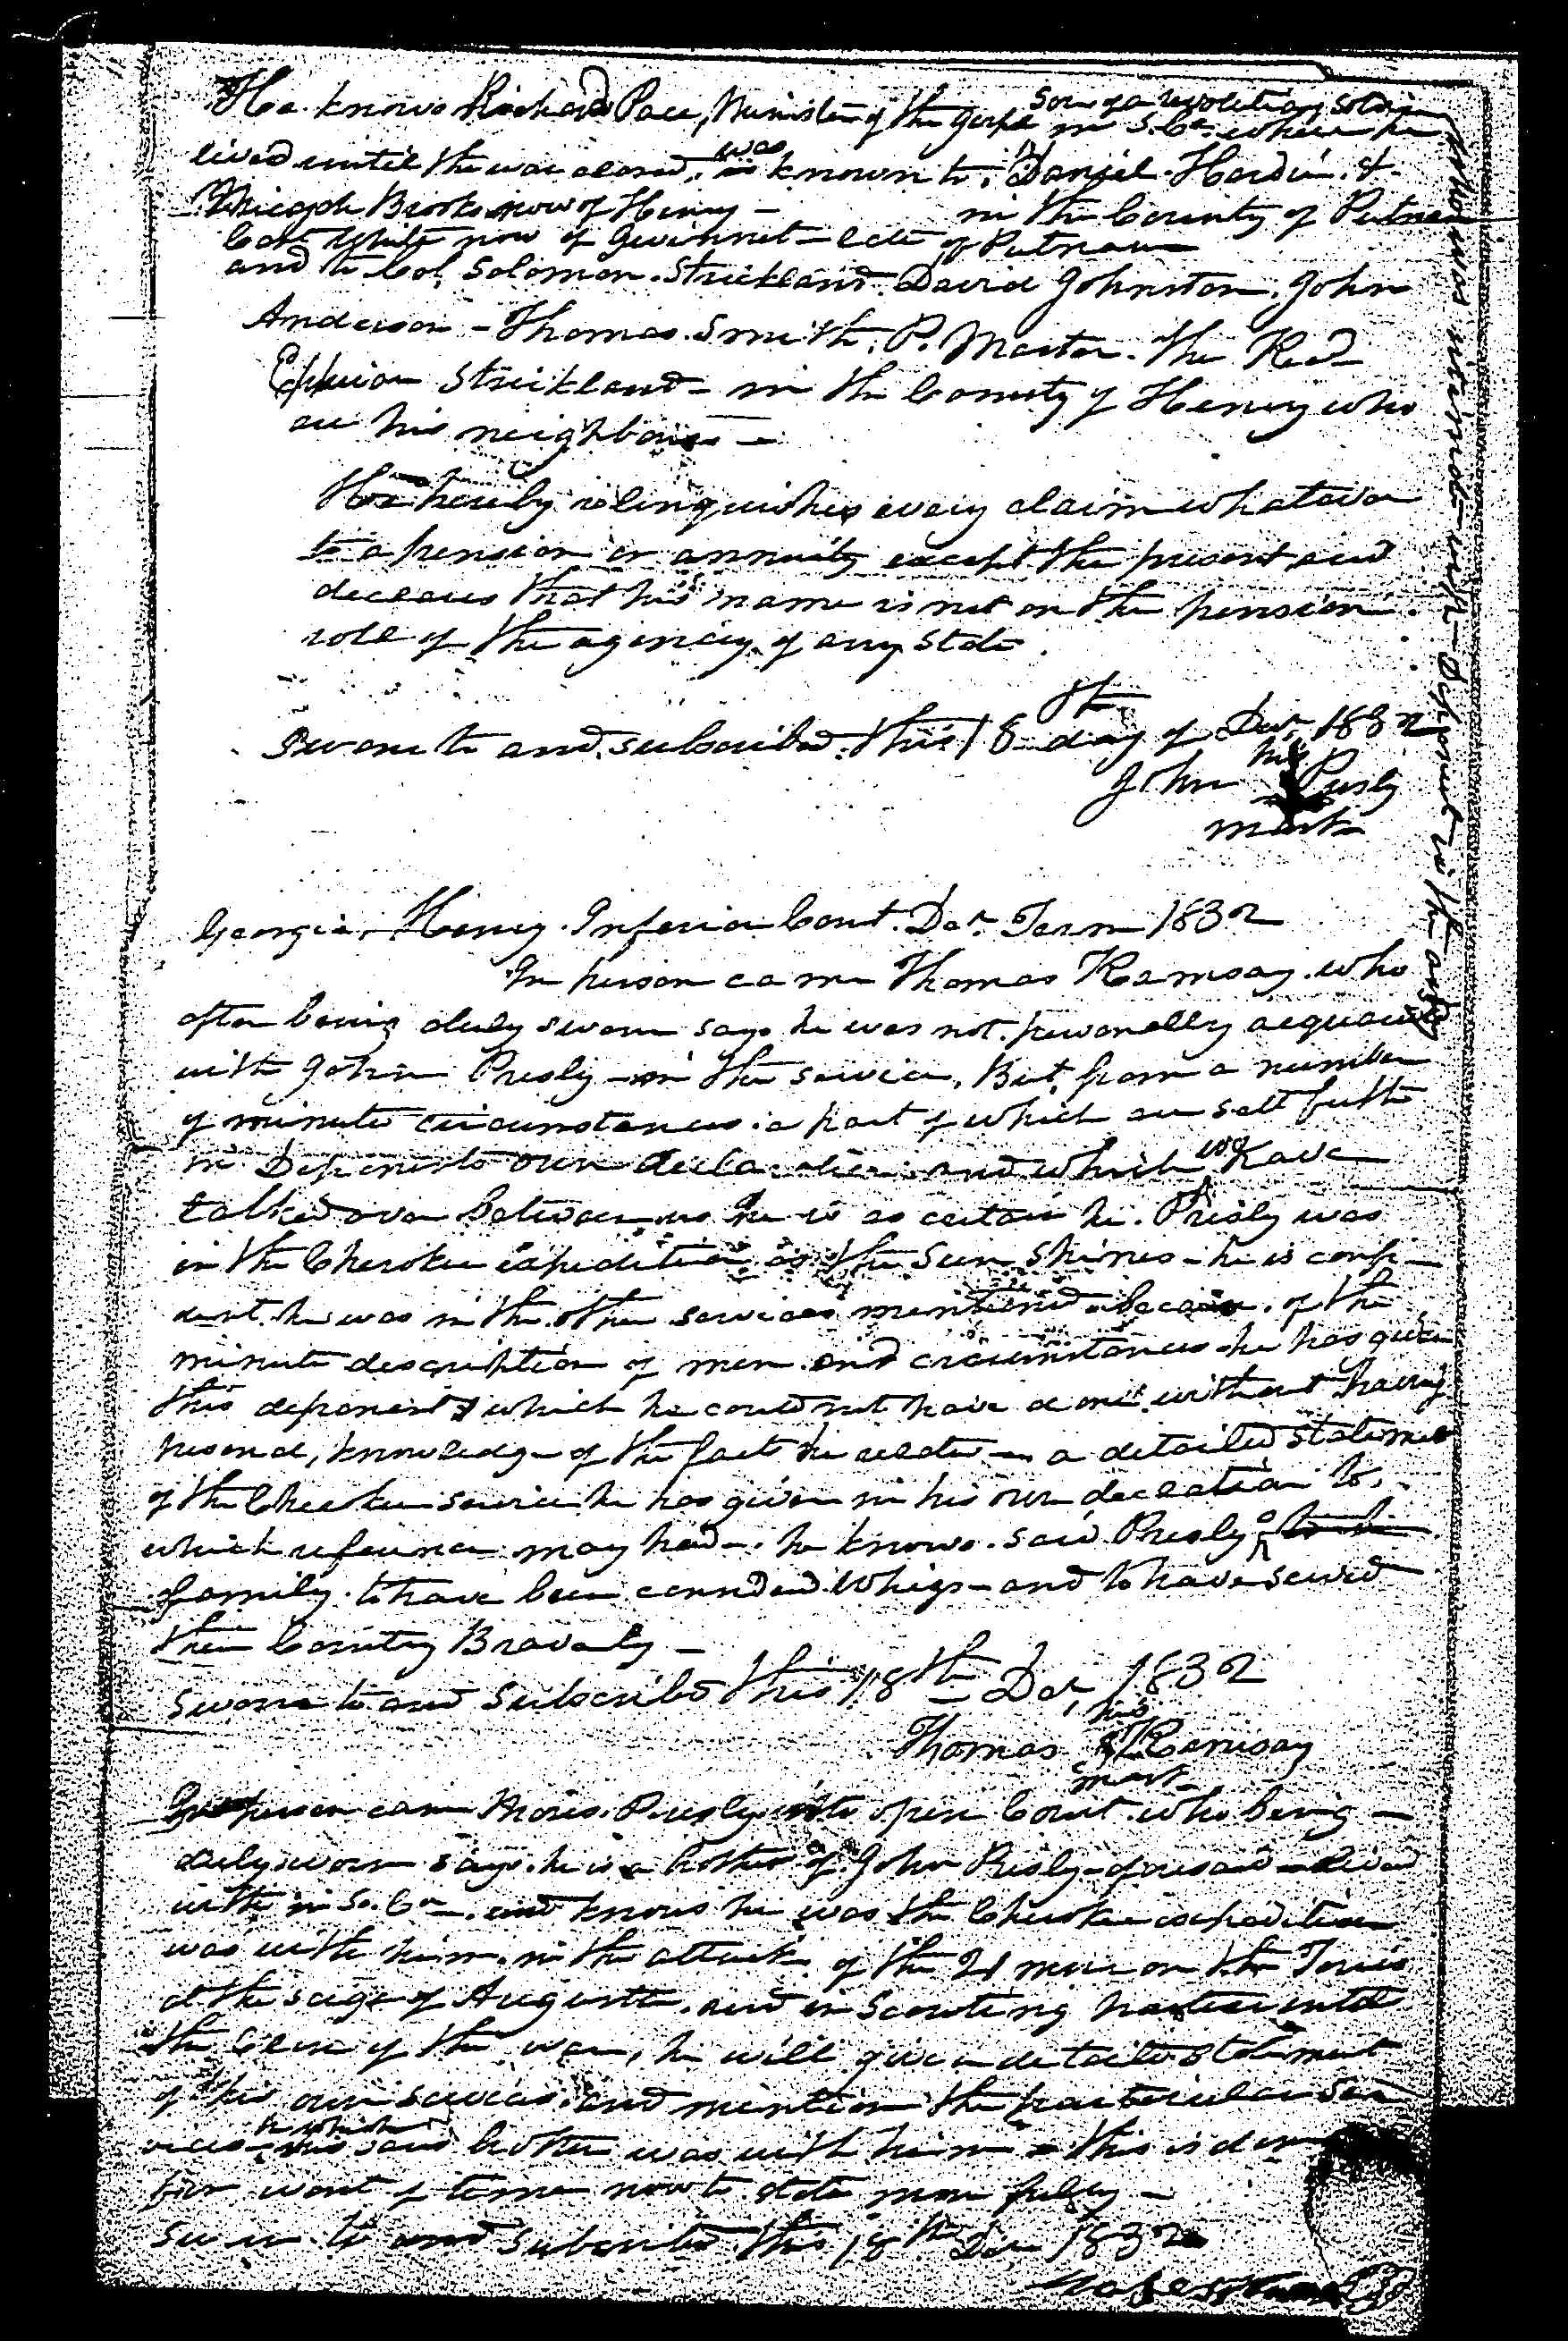 He knows Richard Pace, Minister of the Gospel son of a revolution soldier in S. Ca. where he
lived until the war closed, was known to Daniel Hardin &
Brooks now of Henry — in the County of Putnam
Capt White now of Gwinnet — late of Putnam
and to Col. Solomon Strickland. David Johnston. John
Anderson — Thomas Smith. P. Master. the Red
Strickland — in the County of Henry who
are his neighbours —
He hereby relinquishes every claim whatever
to a pension or annuity except the present and
declares that his name is not on the pension
role of the agency of any State.
Sworn to and subscribed this 18th day of Decr 1832
his
John Presly
mark
Georgia, Henry Inferior Court Decr Term 1832
In person came Thomas Ramsay who
after being duly sworn says he was not personally acquainted
with John Presly in the service, But from a number
of minute circumstances a part of which are sett forth
in Deponents own declaration and which we have
talked over between us he is as certain he Presly was
in the Cherokee expedition as the Sun Shines — he is confi-
dent he was in the other services mentioned because of the
minute description of men and circumstances he has given
this deponent which he could not have done without having
personal knowledge of the facts he relates — a detailed statement
of the Cherokee service he has given in his own declaration to
which reference may had — he knows said Presly
family to have been considered Whigs — and to have served
their Country Bravely —
Sworn to and Subscribed this 18th Dec, 1832
his
Thomas Ramsay
mark
In person came Moses Presley into open Court who being
duly sworn says he is a brother of John Presly aforesaid — lived
with in So. Ca. and knows he was the Cherokee expedition
was with him in the attack of the 21 men on the Tories
at the seige of Augusta. and in Scouting parties until
the Close of the war, he will give a detailed statement
of his own services and mention the particular ser
vices in which his said brother was with him — this is done
for want of time now to state more fully —
Sworn to and Subscribed this 18th Dec 1832
who was with